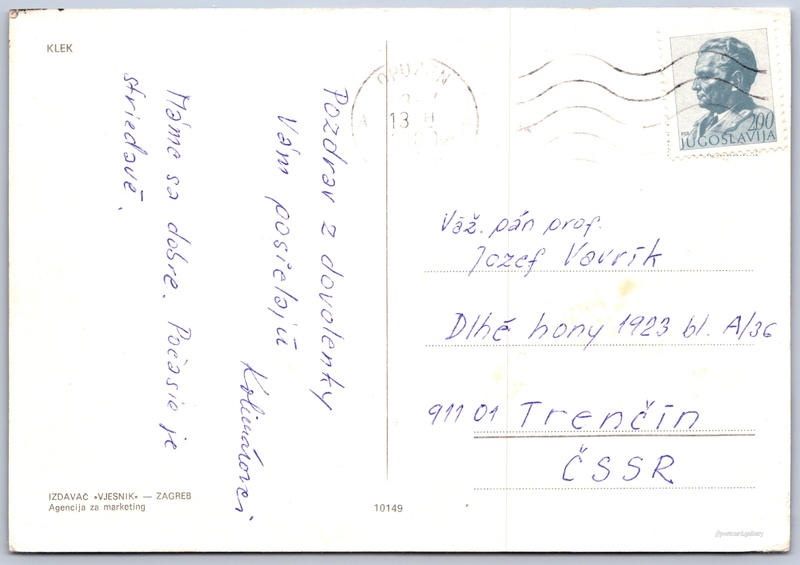 KLEK
Pozdrav z dovolenky
Vám posielajú
Máme sa dobre. Počasie je
striedavé.
OPUZEN
13
200
JUGOSLAVIJA
Váž. pán prof.
Jozef Vavrík
Dlhé hony 1923 bl. A/36
911 01 Trenčín
ČSSR
IZDAVAČ »VJESNIK« — ZAGREB
Agencija za marketing
10149